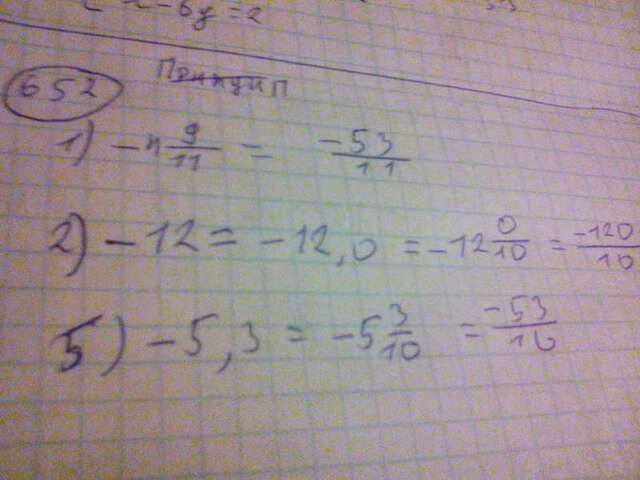 x - 6y = 2
652
Принцип
1) -4 9/11 = -53/11
2) -12 = -12,0 = -12 0/10 = -120/10
5) -5,3 = -5 3/10 = -53/10